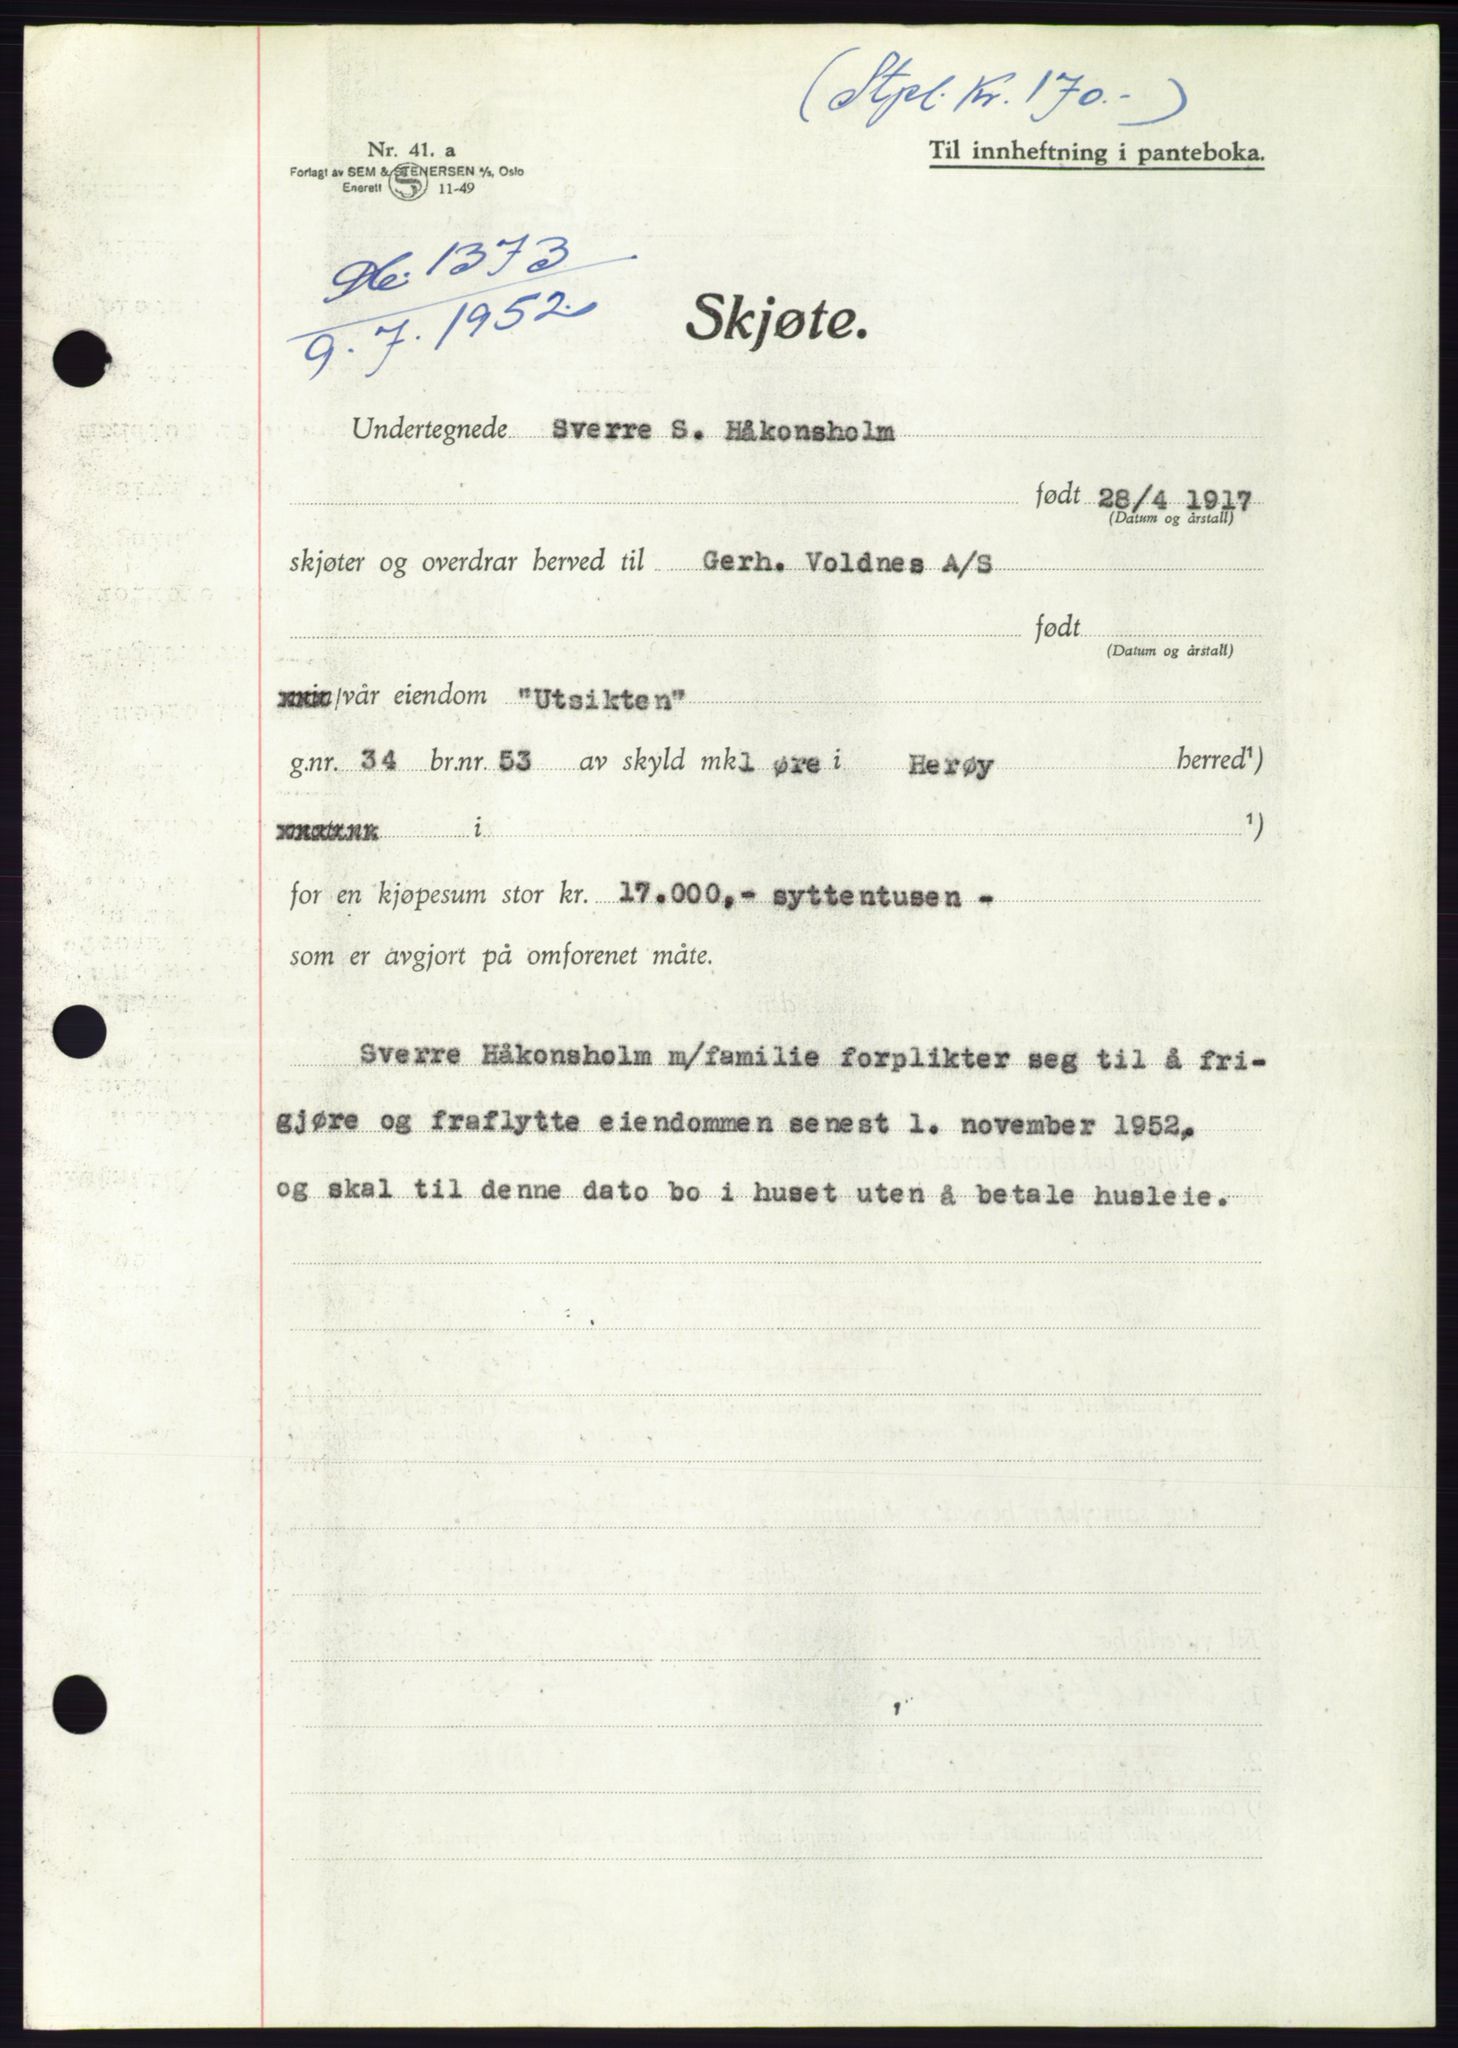 (Stpl. Kr. 170.-)
Nr. 41. a
Forlagt av SEM & STENERSEN A/S, Oslo
Enerett S 11-49
Til innheftning i panteboka.
1373
9. 7. 1952.
Skjøte.
Undertegnede Sverre S. Håkonsholm
født 28/4 1917
(Datum og årstall)
skjøter og overdrar herved til Gerh. Voldnes A/S
født
(Datum og årstall)
/vår eiendom "Utsikten"
g.nr. 34 br.nr. 53 av skyld mk 1 øre i Herøy herred¹)
i ¹)
for en kjøpesum stor kr. 17.000,- syttentusen -
som er avgjort på omforenet måte.
Sverre Håkonsholm m/familie forplikter seg til å fri-
gjøre og fraflytte eiendommen senest 1. november 1952,
og skal til denne dato bo i huset uten å betale husleie.